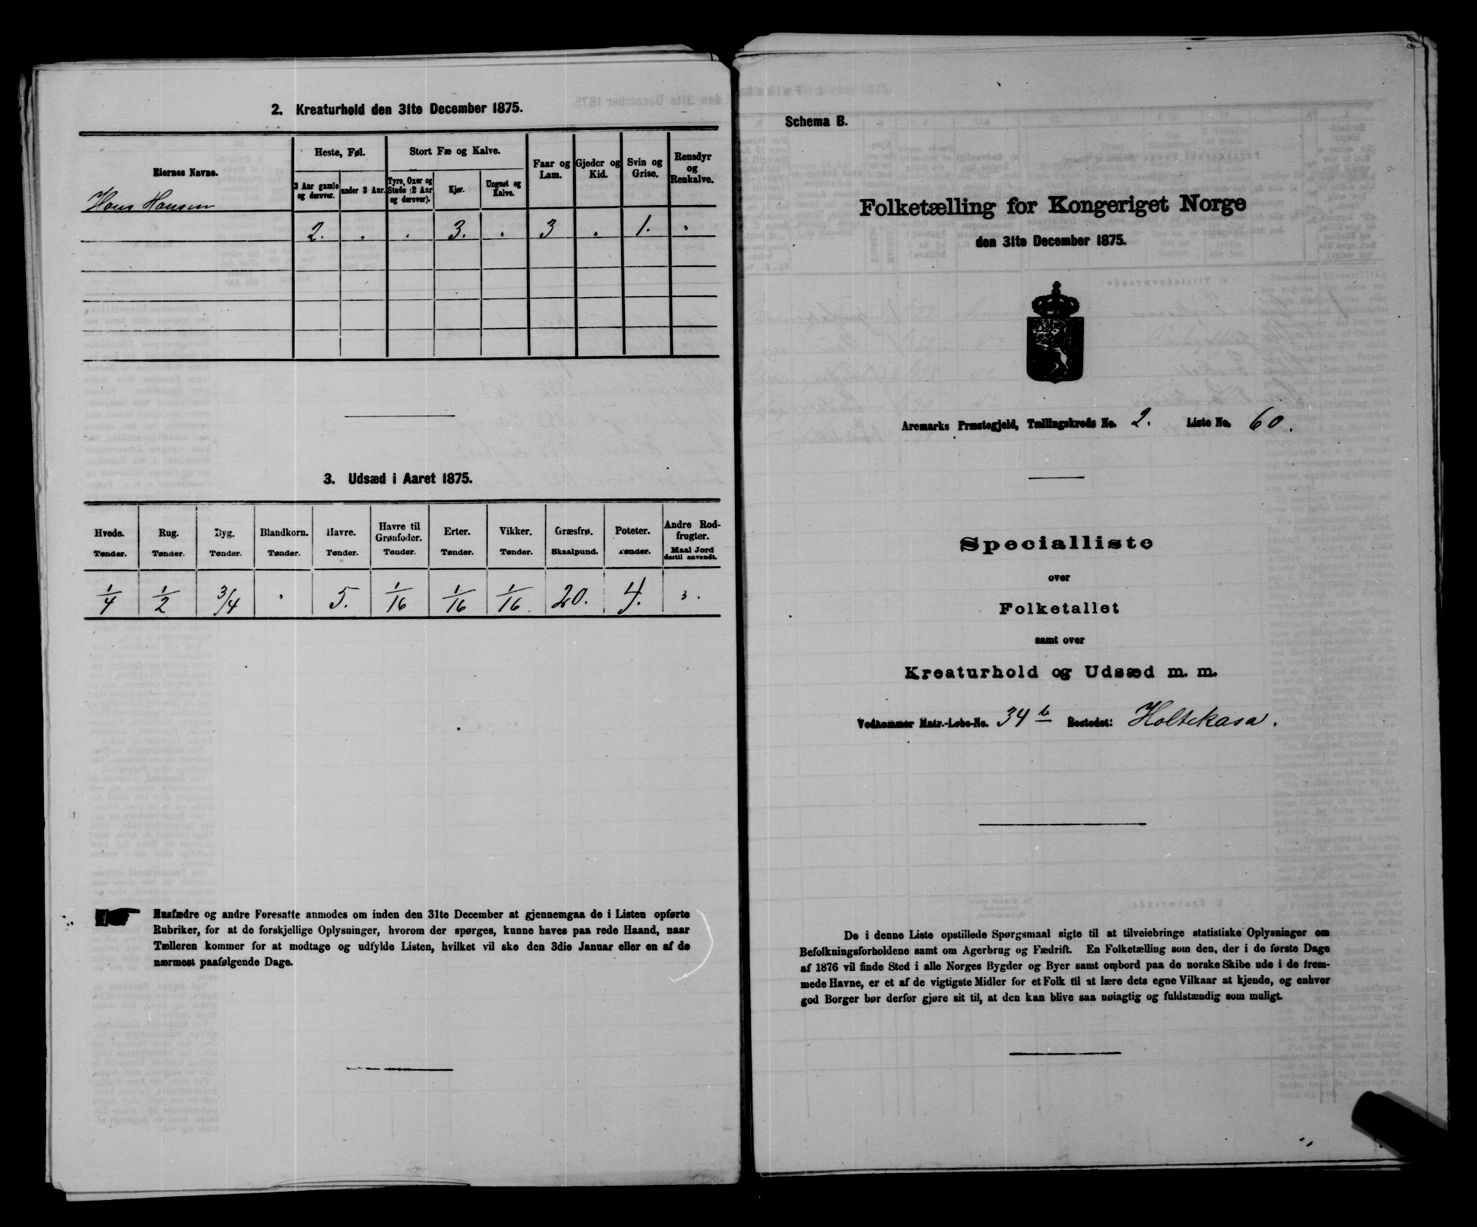 2. Kreaturhold den 31te December 1875.
Eiernes Navne.
Heste, Føl.
Stort Fæ og Kalve.
Faar og Lam.
Gjeder og Kid.
Svin og Grise.
Rensdyr og Renkalve.
3 Aar gamle og derover.
under 3 Aar.
Tyre, Oxer og Stude (2 Aar og derover).
Kjør.
Ungnøt og Kalve.
Hans Hansen
2. . . 3. . 3 . 1. .
3. Udsæd i Aaret 1875.
Hvede. Rug. Byg. Blandkorn. Havre. Havre til Grønfoder. Erter. Vikker. Græsfrø. Poteter. Andre Rodfrugter.
Tønder. Tønder. Tønder. Tønder. Tønder. Tønder. Tønder. Tønder. Skaalpund. Tønder. Maal Jord dertil anvendt.
1/4 1/2 3/4 . 5. 1/16 1/16 1/16. 20. 4.
Husfædre og andre Foresatte anmodes om inden den 31te December at gjennemgaa de i Listen opførte
Rubriker, for at de forskjellige Oplysninger, hvorom der spørges, kunne haves paa rede Haand, naar
Tælleren kommer for at modtage og udfylde Listen, hvilket vil ske den 3die Januar eller en af de
nærmest paafølgende Dage.
Schema B.
Folketælling for Kongeriget Norge
den 31te December 1875.
Aremarks Præstegjeld, Tællingskreds No. 2. Liste No. 60.
Specialliste
over
Folketallet
samt over
Kreaturhold og Udsæd m. m.
Vedkommer Matr.-Løbe-No. 34 b Bostedet: Holtekasa.
De i denne Liste opstillede Spørgsmaal sigte til at tilveiebringe statistiske Oplysninger om
Befolkningsforholdene samt om Agerbrug og Fædrift. En Folketælling som den, der i de første Dage
af 1876 vil finde Sted i alle Norges Bygder og Byer samt ombord paa de norske Skibe ude i de frem-
mede Havne, er et af de vigtigste Midler for et Folk til at lære dets egne Vilkaar at kjende, og enhver
god Borger bør derfor gjøre sit til, at den kan blive saa nøiagtig og fuldstændig som muligt.